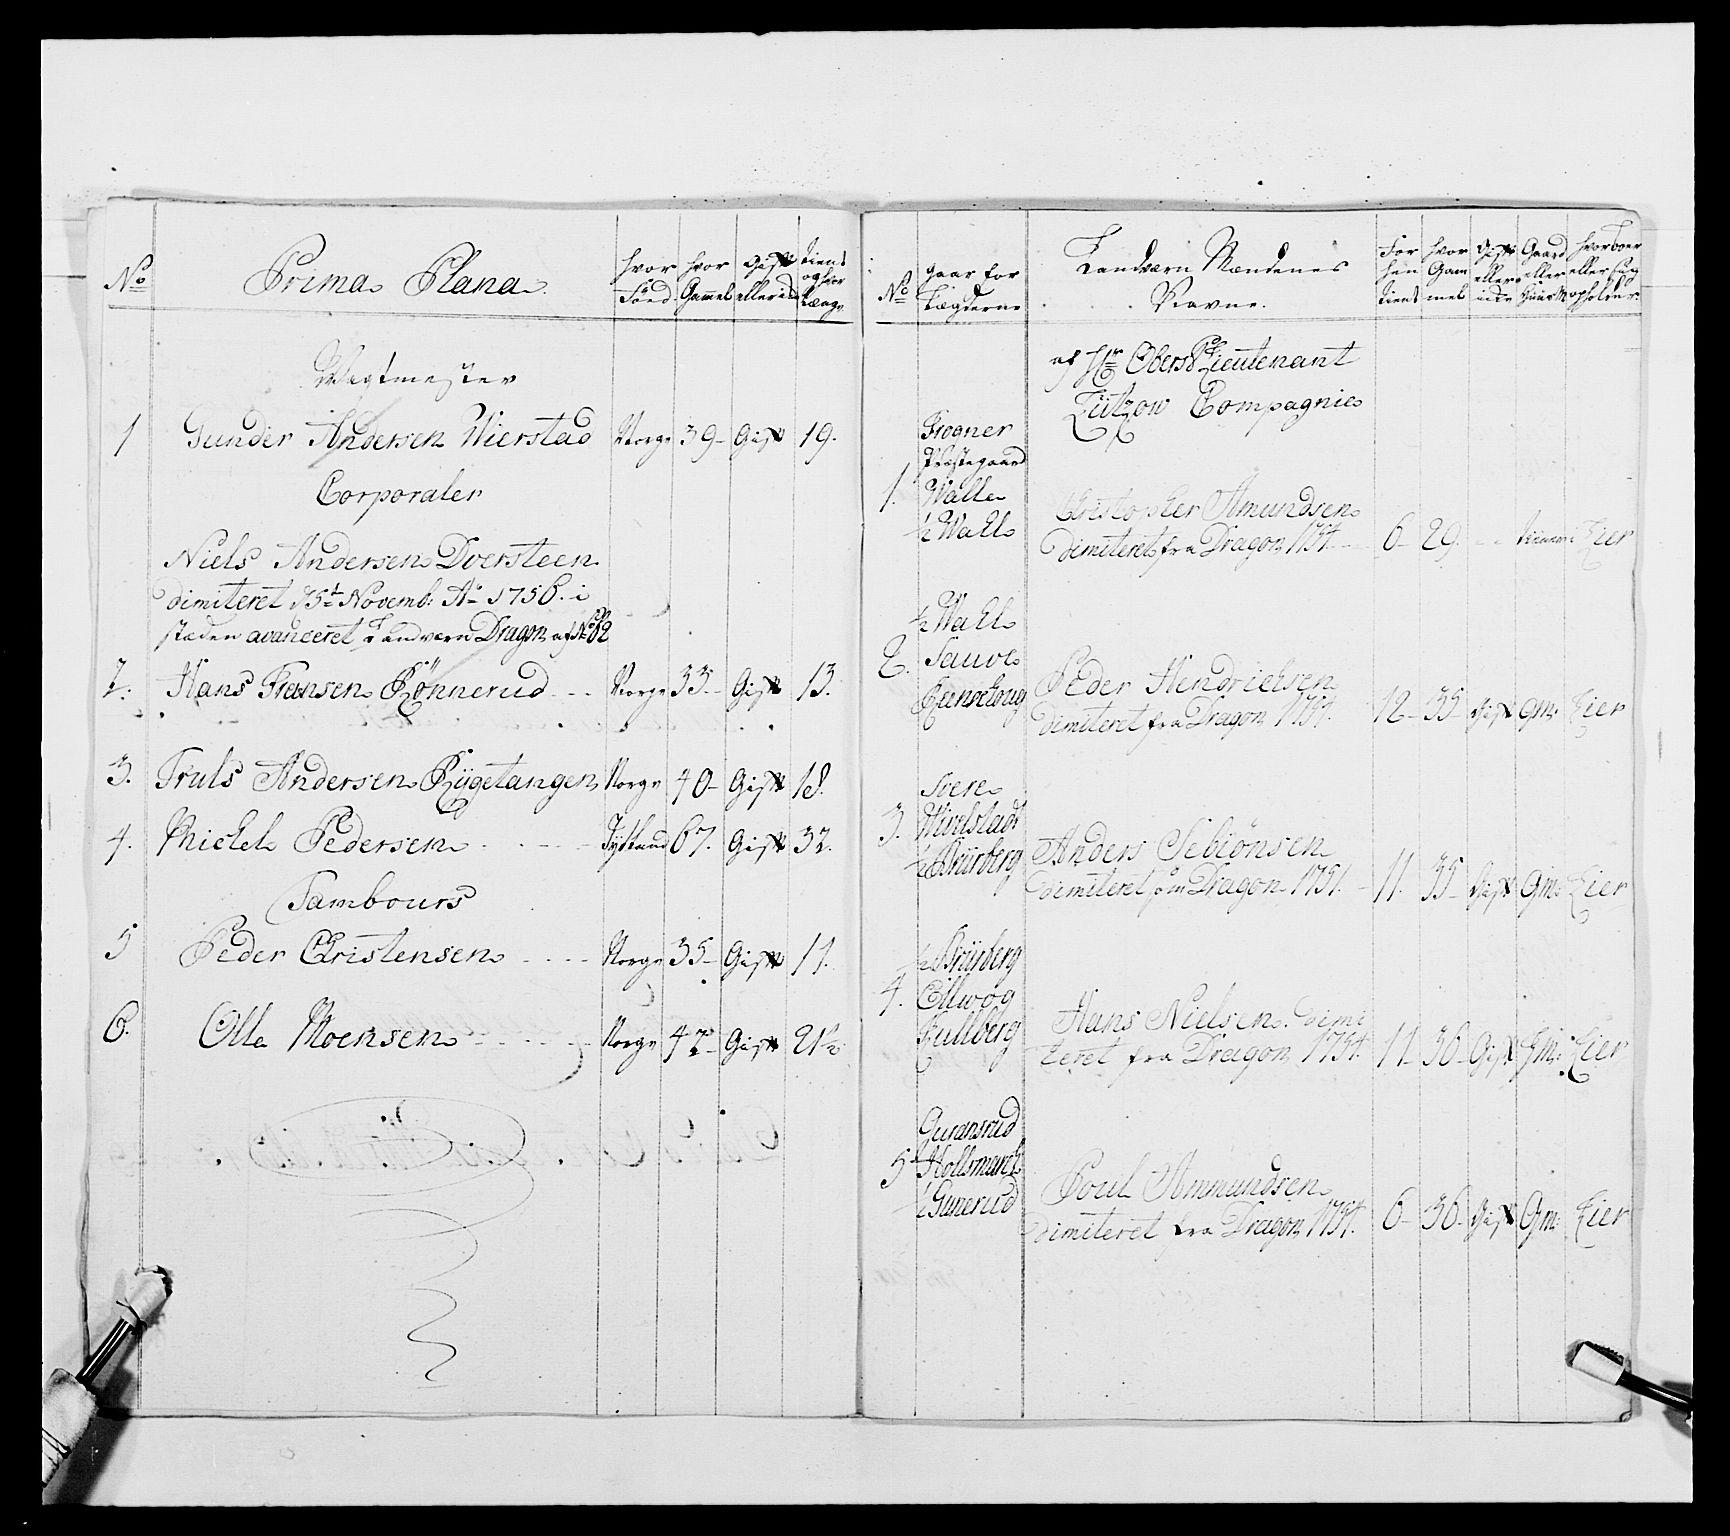 No
Prima Plana
hvor Föed
hvor Gammel
Gift eller
tient og hvor længe
Wagtmester
1 Gunder Andersen Wierstad Norge 39 Gift 19.
Corporaler
Niels Andersen Doersteen
dimiteret d 5t Novemb: Ao 1756. i
stæden avanceret Landværn Dragon af No 62
2. Hans Fransen Rönnerud Norge 33 Gift 13.
3. Truls Andersen Rÿgetangen Norge 40 Gift 18.
4. Michel Pedersen Tydskland 67. Gift 32.
Tambours
5 Peder Christensen Norge 35 Gift 11.
6. Olle Moensen Norge 47 Gift 21½
No
Gaar for Lægderne
Landværn Mændenes
Navne.
For hen tient
hvor Gam mel
Gift eller
Gaard eller
hvor boer eller
opholder
af Hr Oberst Lieutenant
Lützow Compagnie
Frogner
Præstegaard
1. Walle
½ Wahl
Christopher Amundsen
dimiteret fra Dragon 1754. 6 29. Lier
½ Wahl
2. Tauve
Renskoug
Peder Hendrichsen
dimiteret fra Dragon 1757. 12 35 Gift Gm: Lier
Svere
3. Wivelstad
½ Brürberg
Anders Sebiönsen
dimiteret som Dragon 1751. 11. 35 Gift Gm: Lier
½ Brürberg
4. Ellwog
Kullberg
Hans Nielsen. dimi
teret fra Dragon 1754. 11 36 Gift Gm: Lier
Guransrud
5 Hollsmarck
½ Gunerud
Poul Ammundsen
dimiteret fra Dragon 1754. 6 36 Gift Gm: Lier